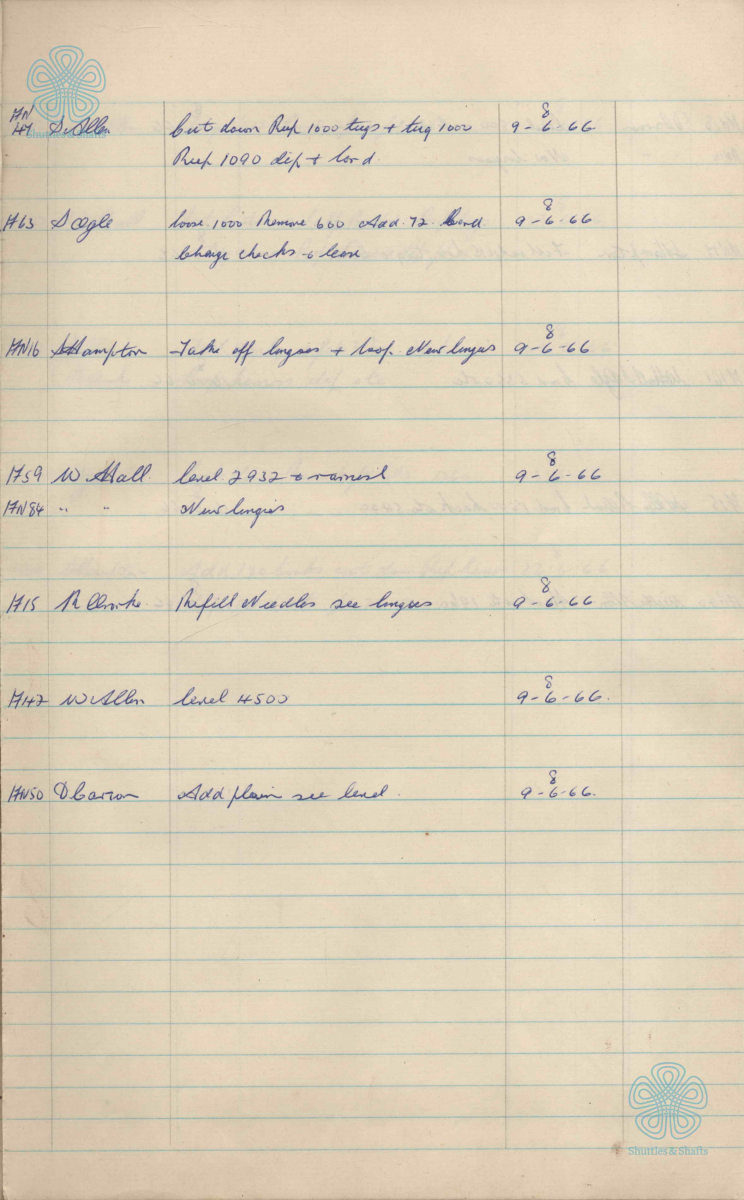 8
47 S. Allen Cut down Rep 1000 tugs + tug 1000 9-6-66
Rep 1090 dip + lord.
8
H63 S Ogle loose 1000 Remove 600 Add. 72 9-6-66
Change checks + lease
8
HN16 S Hampton Take off lingoes + loop. New lingoes 9-6-66
8
H59 W Hall. level 2932 9-6-66
HN84 " " New lingoes
8
H15 Refill Needles see lingoes 9-6-66
8
H47 W Allen level 4500 9-6-66.
8
HN50 D Carson Add plain see level. 9-6-66.
Shuttles & Shafts